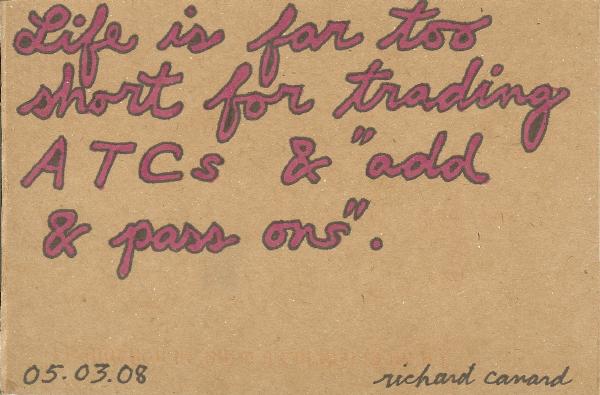 Life is far too
short for trading
ATCs & "add
& pass ons".
05.03.08 richard canard